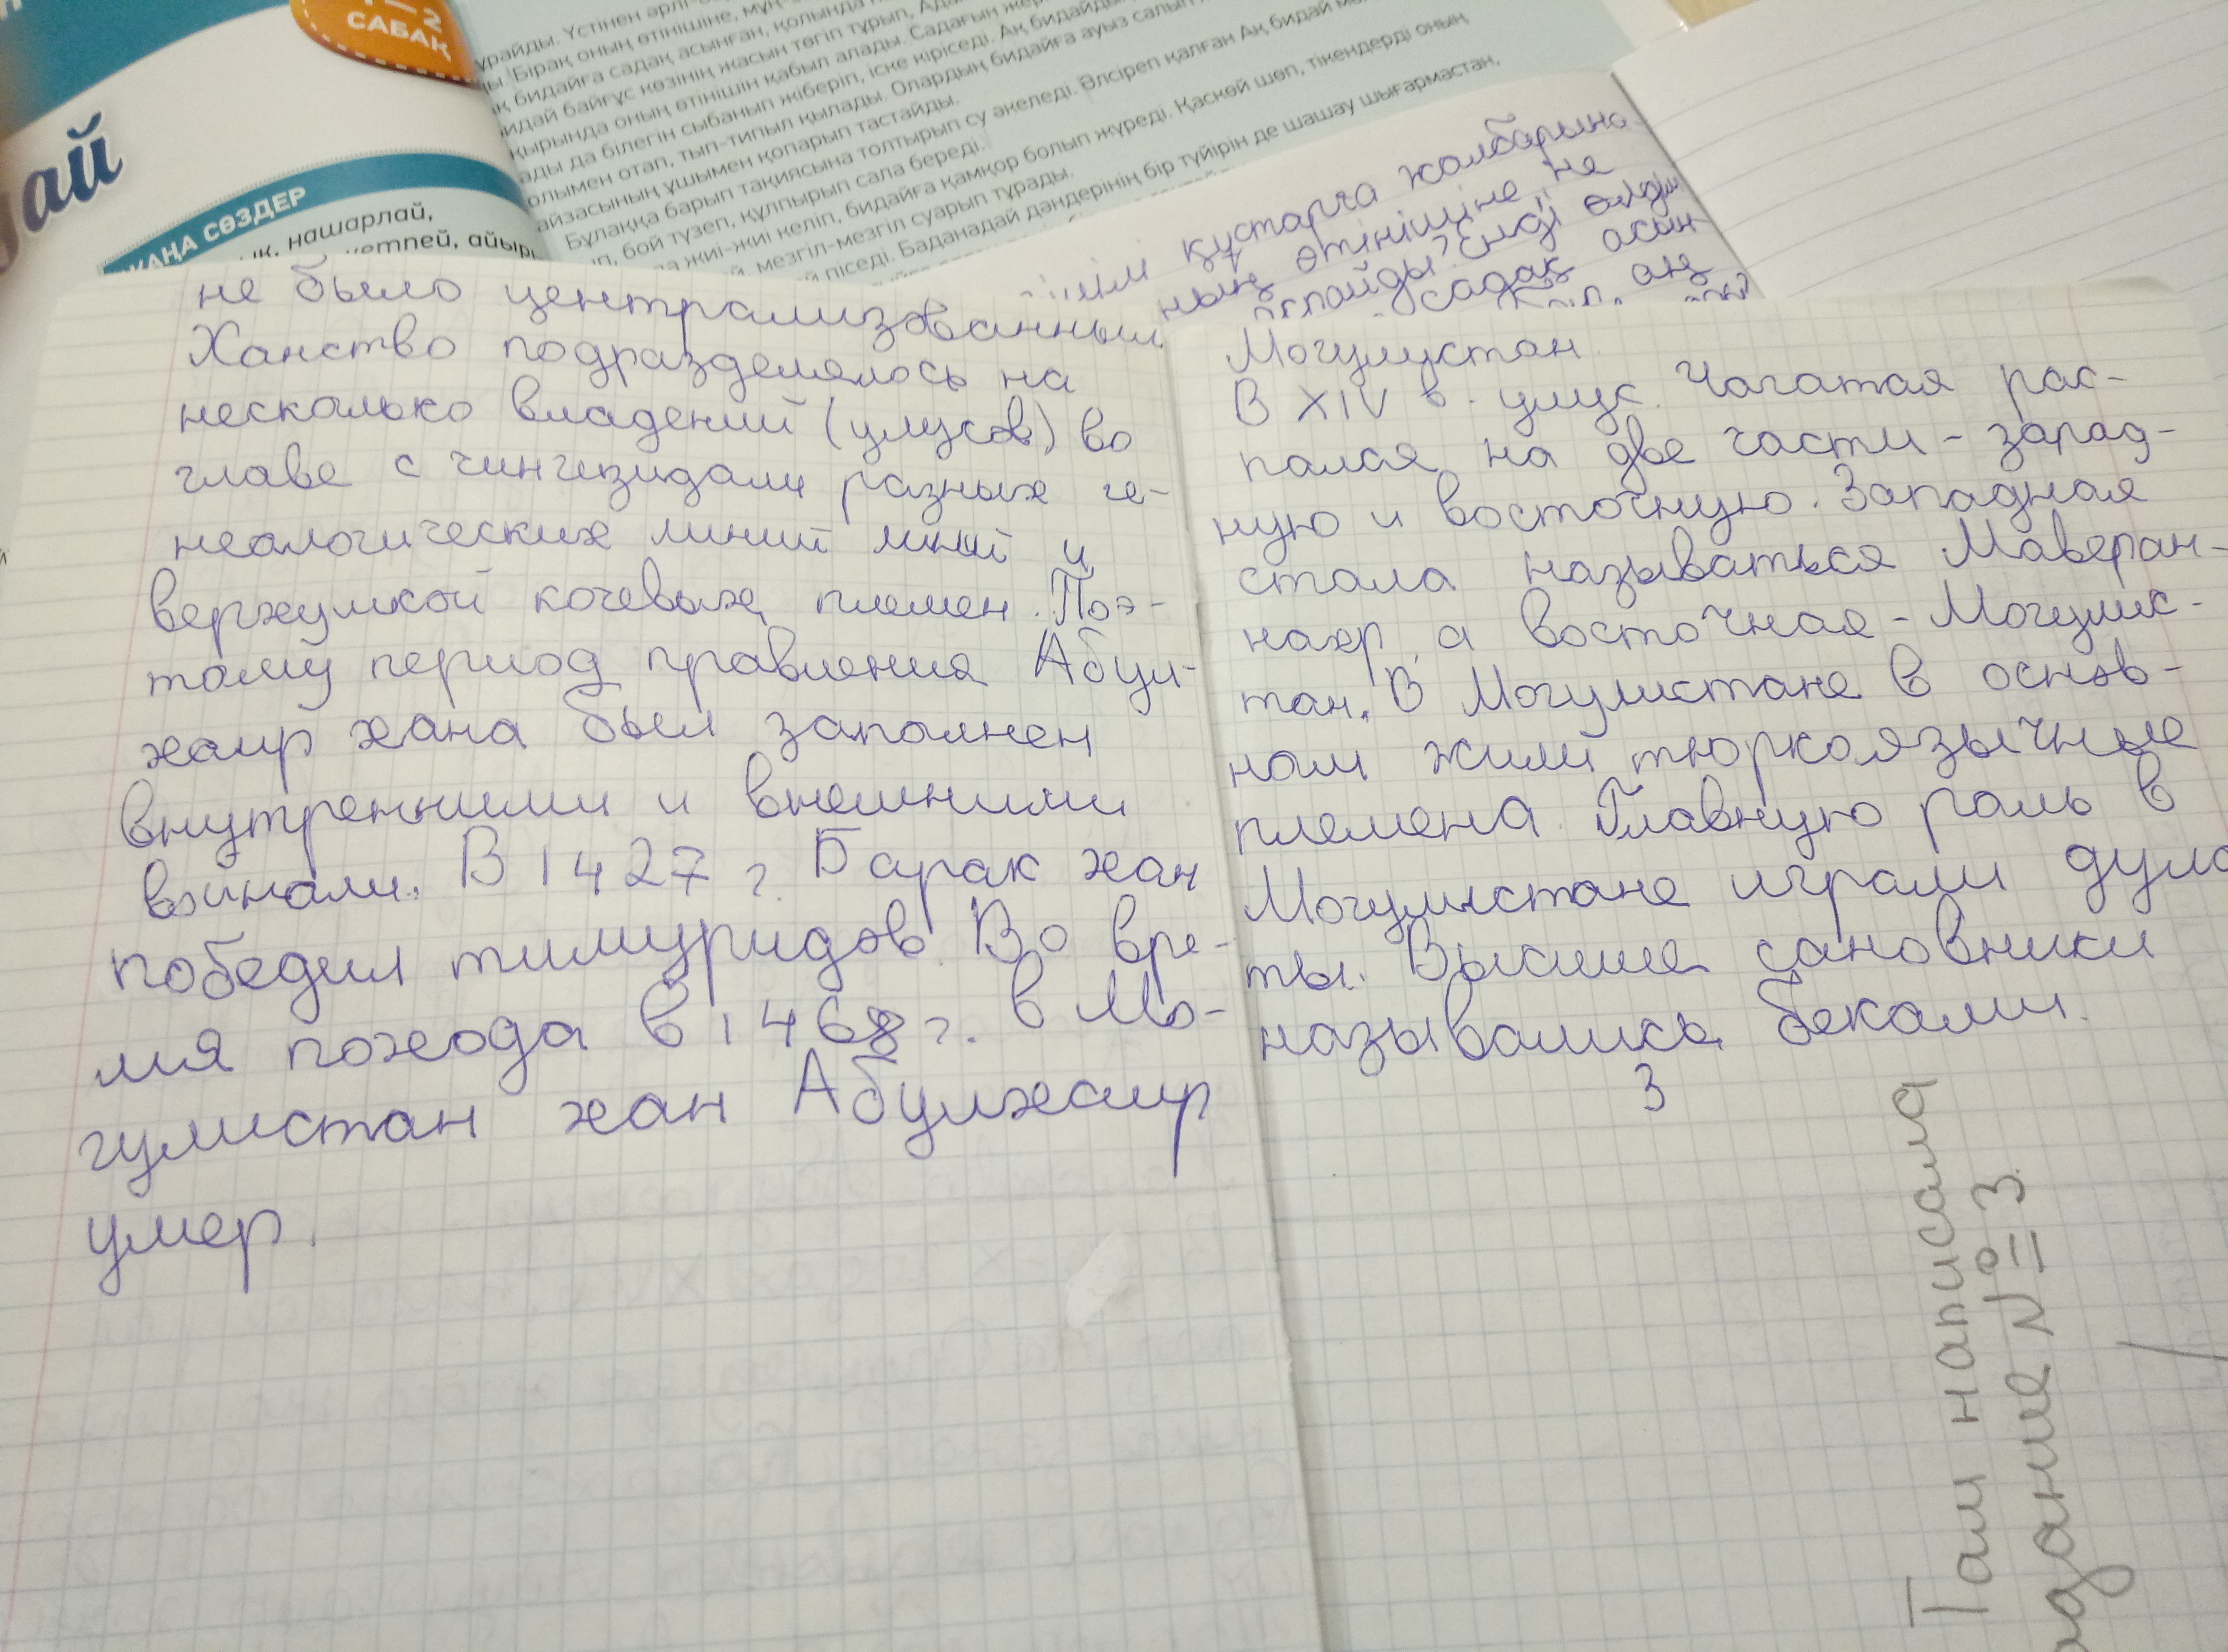 1—2
САБАҚ
дай
ЖАҢА СӨЗДЕР
нашарлай,
кетпей, айыры
ұрайды. Үстінен әрлі-б
ды. Бірақ оның өтінішіне, мұң-
ақ бидайға садақ асынған, қолында н
идай байғұс көзінің жасын төгіп тұрып, Ада
қырында оның өтінішін қабыл алады. Садағын жер
ады да білегін сыбанып жіберіп, іске кіріседі. Ақ бидайды
олымен отап, тып-типыл қылады. Олардың бидайға ауыз салып
айзасының ұшымен қопарып тастайды.
Бұлаққа барып тақиясына толтырып су әкеледі. Әлсіреп қалған Ақ бидай
п, бой түзеп, құлпырып сала береді.
а жиі-жиі келіп, бидайға қамқор болып жүреді. Қаскөй шөп, тікендерді оның
й, мезгіл-мезгіл суарып тұрады.
й піседі. Баданадай дәндерінің бір түйірін де шашау шығармастан,
құстарға жалбарына
ның өтінішіне не
садақ асын
не было централизованным.
Ханство подразделялось на
несколько владений (улусов) во
главе с чингизидами разных ге-
неалогических линий линий и
верхушкой кочевых племен. Поэ-
тому период правления Абул-
хаир хана был заполнен
внутренними и внешними
войнами. В 1427 г. Барак хан
победил тимуридов. Во вре-
мя похода в 1468 г. в Мо-
гулистан хан Абулхаир
умер.
Могулистан.
В XIV в. улус Чагатая рас-
пался на две части - запад-
ную и восточную. Западная
стала называться Маверан-
нахр, а восточная - Могулис-
тан. В Могулистане в основ-
ном жили тюркоязычные
племена. Главную роль в
Могулистане играли дула
ты. Высшие сановники
назывались беками.
3
Там написала
задание №3.